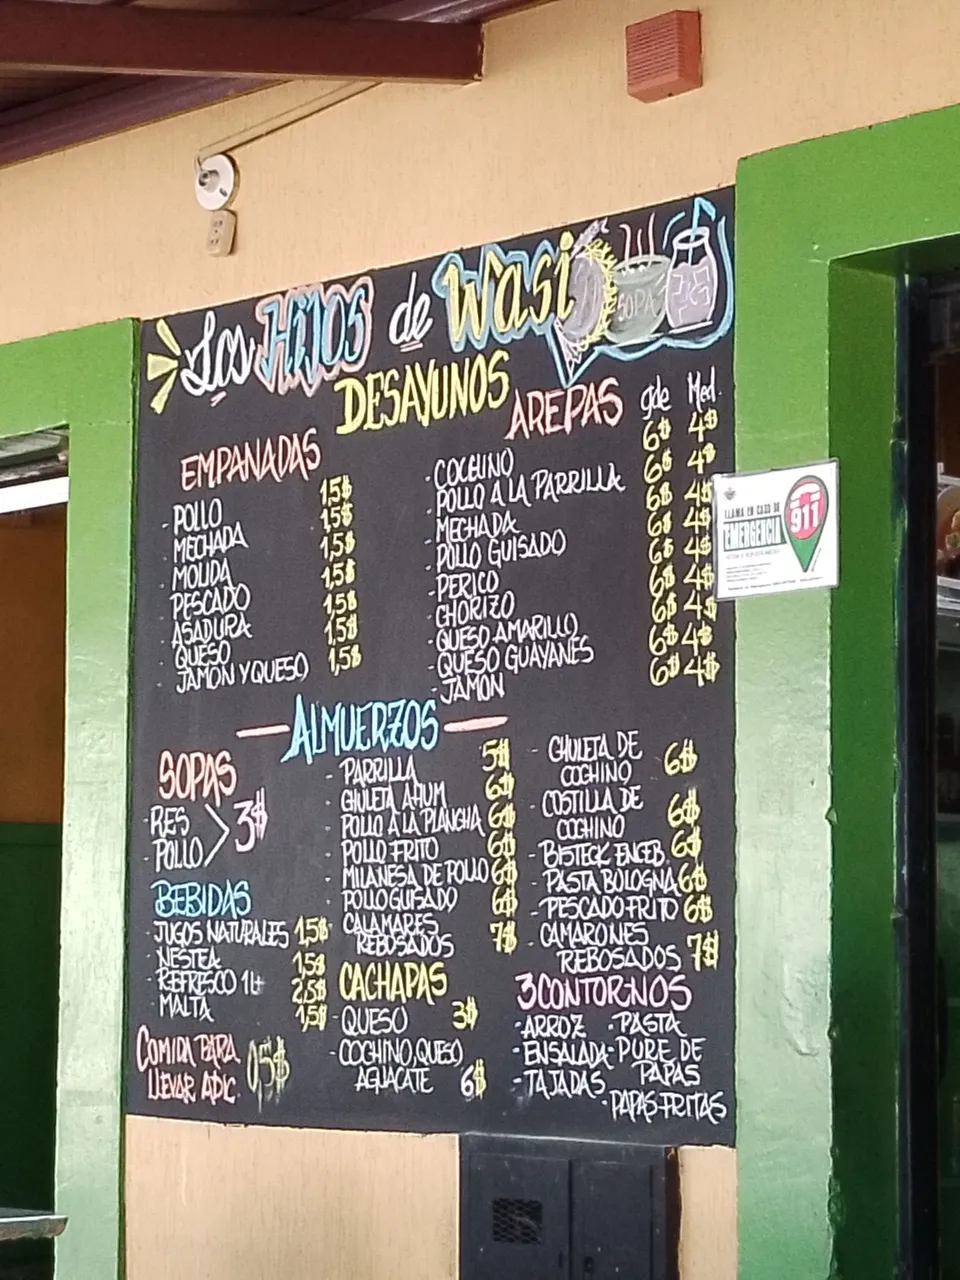 Los Hijos de Wasi
SOPA
DESAYUNOS
EMPANADAS
- POLLO 1,5$
- MECHADA 1,5$
- MOLIDA 1,5$
- PESCADO 1,5$
- ASADURA 1,5$
- QUESO 1,5$
- JAMON Y QUESO 1,5$
AREPAS gde Med.
- COCHINO 6$ 4$
- POLLO A LA PARRILLA 6$ 4$
- MECHADA 6$ 4$
- POLLO GUISADO 6$ 4$
- PERICO 6$ 4$
- CHORIZO 6$ 4$
- QUESO AMARILLO 6$ 4$
- QUESO GUAYANES 6$ 4$
- JAMON 6$ 4$
ALMUERZOS
SOPAS
- RES
- POLLO > 3$
BEBIDAS
- JUGOS NATURALES 1,5$
- NESTEA 1,5$
- REFRESCO 1Lt 2,5$
- MALTA 1,5$
COMIDA PARA
LLEVAR ADIC. 0,5$
- PARRILLA 5$
- CHULETA AHUM 6$
- POLLO A LA PLANCHA 6$
- POLLO FRITO 6$
- MILANESA DE POLLO 6$
- POLLO GUISADO 6$
- CALAMARES
REBOSADOS 7$
CACHAPAS
- QUESO 3$
- COCHINO, QUESO,
AGUACATE 6$
- CHULETA DE
COCHINO 6$
- COSTILLA DE
COCHINO 6$
- BISTECK ENCEB. 6$
- PASTA BOLOGNA 6$
- PESCADO FRITO 6$
- CAMARONES
REBOSADOS 7$
3 CONTORNOS
- ARROZ - PASTA
- ENSALADA - PURE DE
PAPAS
- TAJADAS
- PAPAS FRITAS
LLAMA EN CASO DE
EMERGENCIA
911